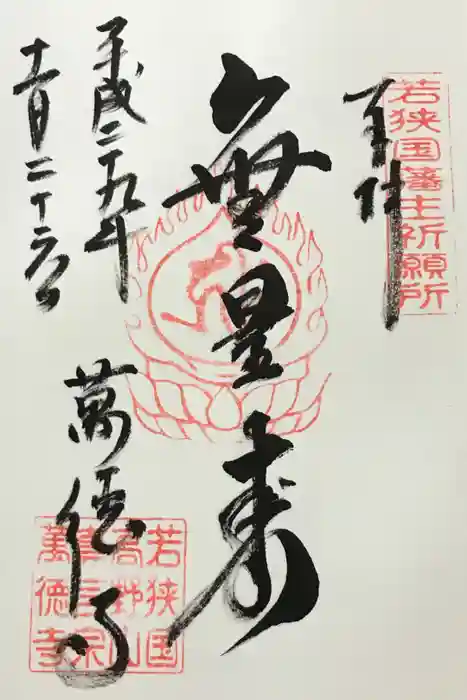 奉拝
若狭国藩主祈願所
無量寿
平成二十九年
十一月二十六日
萬徳寺
若狭国
高野山
真言宗
萬徳寺